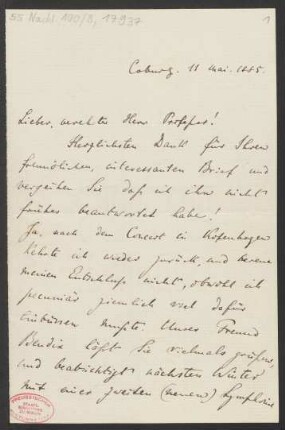 55 Nachl. 100/B, 17937
1
Coburg. 11 Mai. 1885.
Lieber, verehrter Herr Professor!
Herzlichsten Dank für Ihren
freundlichen, interessanten Brief und
verzeihen Sie daß ich ihn nicht
früher beantwortet habe!
Ja, nach dem Concert in Kopenhagen
kehrte ich wieder zurück und bereue
meinen Entschluß nicht, obwohl ich
pecuniär ziemlich viel dafür
einbüssen mußte. Unser Freund
Bendix läßt Sie vielmals grüßen,
und beabsichtigt nächsten Winter
mit einer zweiten (neuen) Symphonie